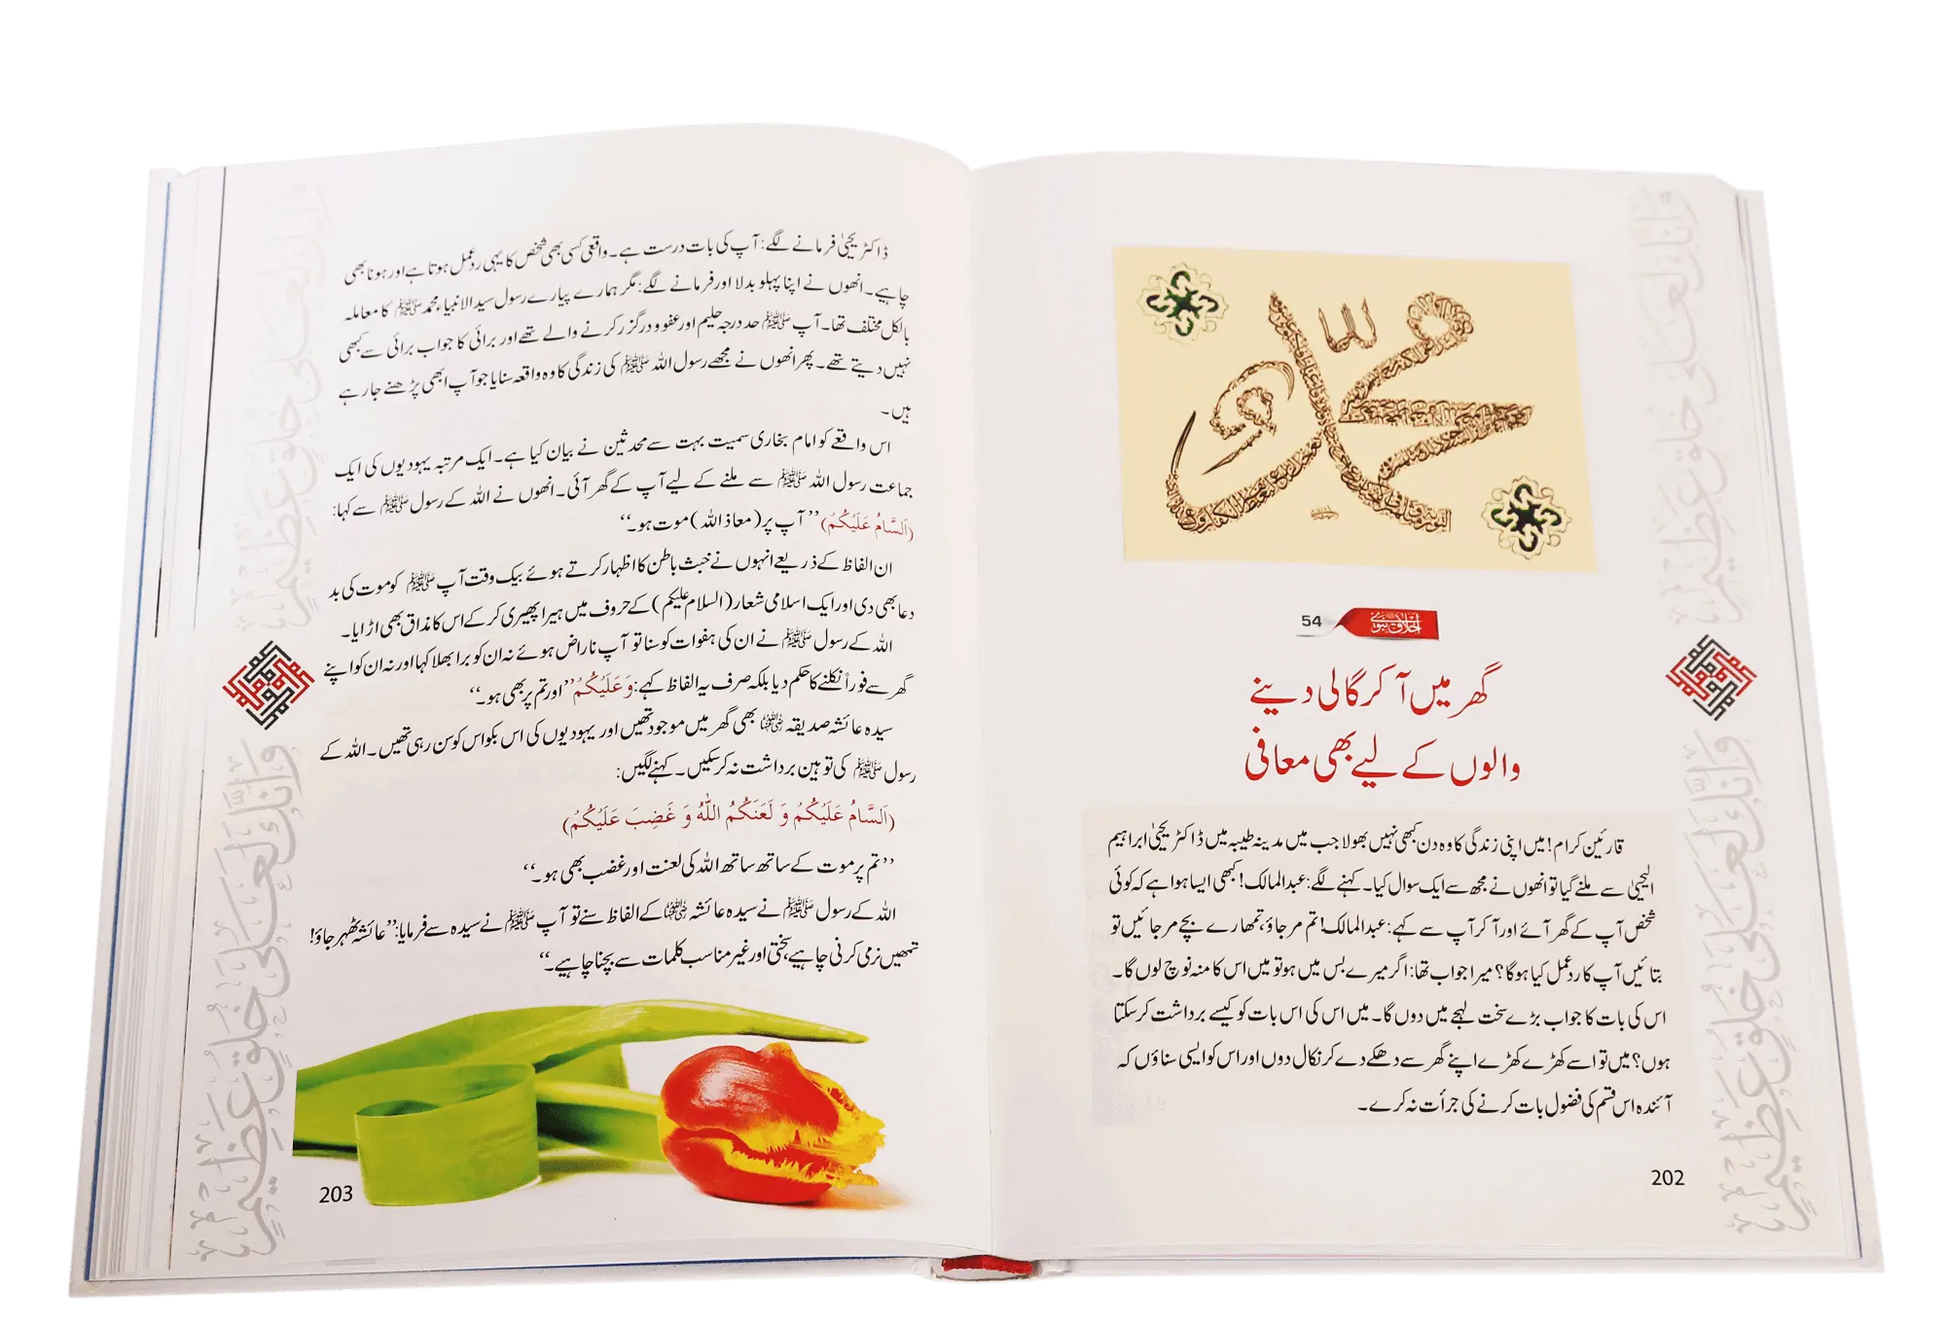 اخلاق نبوی
54
گھر میں آ کر گالی دینے
والوں کے لیے بھی معافی
قارئین کرام! میں اپنی زندگی کا وہ دن کبھی نہیں بھولا جب میں مدینہ طیبہ میں ڈاکٹر یحییٰ ابراہیم
الیحییٰ سے ملنے گیا تو انھوں نے مجھ سے ایک سوال کیا۔ کہنے لگے: عبدالمالک! کبھی ایسا ہوا ہے کہ کوئی
شخص آپ کے گھر آئے اور آ کر آپ سے کہے: عبدالمالک! تم مر جاؤ، تمھارے بچے مر جائیں تو
بتائیں آپ کا ردعمل کیا ہوگا؟ میرا جواب تھا: اگر میرے بس میں ہو تو میں اس کا منہ نوچ لوں گا۔
اس کی بات کا جواب بڑے سخت لہجے میں دوں گا۔ میں اس کی اس بات کو کیسے برداشت کر سکتا
ہوں؟ میں تو اسے کھڑے کھڑے اپنے گھر سے دھکے دے کر نکال دوں اور اس کو ایسی سناؤں کہ
آئندہ اس قسم کی فضول بات کرنے کی جرأت نہ کرے۔
202
وَإِنَّكَ لَعَلَىٰ خُلُقٍ عَظِيمٍ
ڈاکٹر یحییٰ فرمانے لگے: آپ کی بات درست ہے۔ واقعی کسی بھی شخص کا یہی ردعمل ہوتا ہے اور ہونا بھی
چاہیے۔ انھوں نے اپنا پہلو بدلا اور فرمانے لگے: مگر ہمارے پیارے رسول سید الانبیاء محمد ﷺ کا معاملہ
بالکل مختلف تھا۔ آپ ﷺ حد درجہ حلیم اور عفو و درگزر کرنے والے تھے اور برائی کا جواب برائی سے کبھی
نہیں دیتے تھے۔ پھر انھوں نے مجھے رسول اللہ ﷺ کی زندگی کا وہ واقعہ سنایا جو آپ ابھی پڑھنے جا رہے
ہیں۔
اس واقعے کو امام بخاری سمیت بہت سے محدثین نے بیان کیا ہے۔ ایک مرتبہ یہودیوں کی ایک
جماعت رسول اللہ ﷺ سے ملنے کے لیے آپ کے گھر آئی۔ انھوں نے اللہ کے رسول ﷺ سے کہا:
(اَلسَّامُ عَلَيْكُمْ) ’’آپ پر (معاذ اللہ) موت ہو۔‘‘
ان الفاظ کے ذریعے انہوں نے خبث باطن کا اظہار کرتے ہوئے بیک وقت آپ ﷺ کو موت کی بد
دعا بھی دی اور ایک اسلامی شعار (السلام علیکم) کے حروف میں ہیرا پھیری کر کے اس کا مذاق بھی اڑایا۔
اللہ کے رسول ﷺ نے ان کی ہفوات کو سنا تو آپ ناراض ہوئے نہ ان کو برا بھلا کہا اور نہ ان کو اپنے
گھر سے فوراً نکلنے کا حکم دیا بلکہ صرف یہ الفاظ کہے: وَعَلَيْكُمْ ’’اور تم پر بھی ہو۔‘‘
سیدہ عائشہ صدیقہ ؓ بھی گھر میں موجود تھیں اور یہودیوں کی اس بکواس کو سن رہی تھیں۔ اللہ کے
رسول ﷺ کی توہین برداشت نہ کر سکیں۔ کہنے لگیں:
(اَلسَّامُ عَلَيْكُمْ وَ لَعَنَكُمُ اللّٰهُ وَ غَضِبَ عَلَيْكُمْ)
’’تم پر موت کے ساتھ ساتھ اللہ کی لعنت اور غضب بھی ہو۔‘‘
اللہ کے رسول ﷺ نے سیدہ عائشہ ؓ کے الفاظ سنے تو آپ ﷺ نے سیدہ سے فرمایا: ’’عائشہ ٹھہر جاؤ!
تمھیں نرمی کرنی چاہیے، سختی اور غیر مناسب کلمات سے بچنا چاہیے۔‘‘
203
وَإِنَّكَ لَعَلَىٰ خُلُقٍ عَظِيمٍ